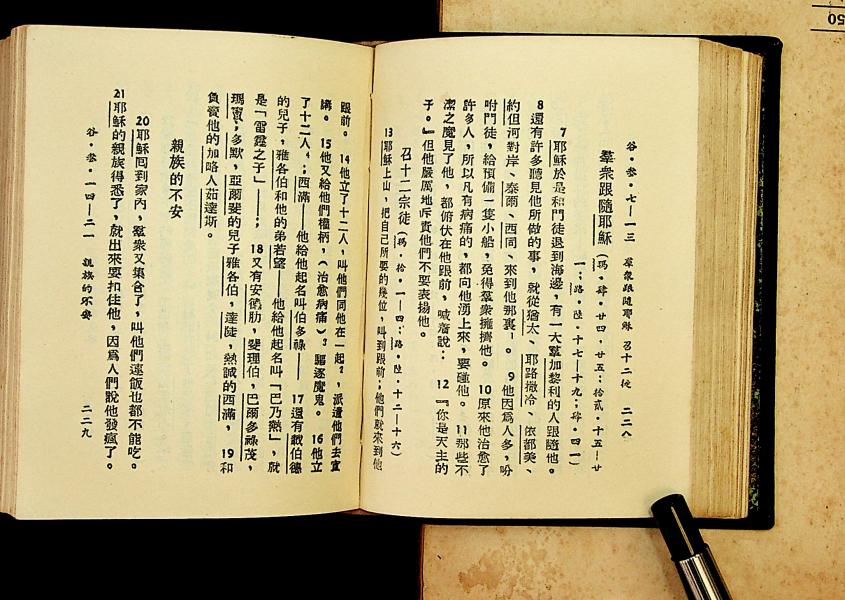 谷·叁·七—一三　羣衆跟隨耶穌　召十二徒　二二八
羣衆跟隨耶穌（瑪·肆·廿四·廿五；拾貳·十五—廿
一；路·陸·十七—十九；肆·四一）
7 耶穌於是和門徒退到海邊，有一大羣加黎利的人跟隨他。
8 還有許多聽見他所做的事，就從猶太、耶路撒冷、依都美、
約但河對岸、泰爾、西同、來到他那裏¹。9 他因爲人多，吩
咐門徒，給預備一隻小船，免得羣衆擁擠他。10 原來他治愈了
許多人，所以凡有病痛的，都向他湧上來，要碰他。11 那些不
潔之魔見了他，都俯伏在他跟前，喊着說：12『你是天主的
子。』但他嚴厲地斥責他們不要表揚他。
召十二宗徒（瑪·拾·一—四；路·陸·十二—十六）
13 耶穌上山，把自己所要的幾位，叫到跟前；他們就來到他
跟前。14 他立了十二人，叫他們同他在一起²，派遣他們去宣
講。15 他又給他們權柄，（治愈病痛）³驅逐魔鬼。16 他立
了十二人⁴：西滿——他給他起名叫伯多祿——17 還有載伯德
的兒子，雅各伯和他的弟若望——他給他起名叫『巴乃熱』，就
是『雷霆之子』——；18 又有安德肋，斐理伯，巴爾多祿茂，
瑪竇，多默，亞爾斐的兒子雅各伯，達陡，熱誠的西滿，19 和
負賣他的加略人茹達斯。
親族的不安
20 耶穌囘到家內，羣衆又集合了，叫他們連飯也都不能吃。
21 耶穌的親族得悉了，就出來要扣住他，因爲人們說他發瘋了。
谷·叁·一四—二一　親族的不安　二二九